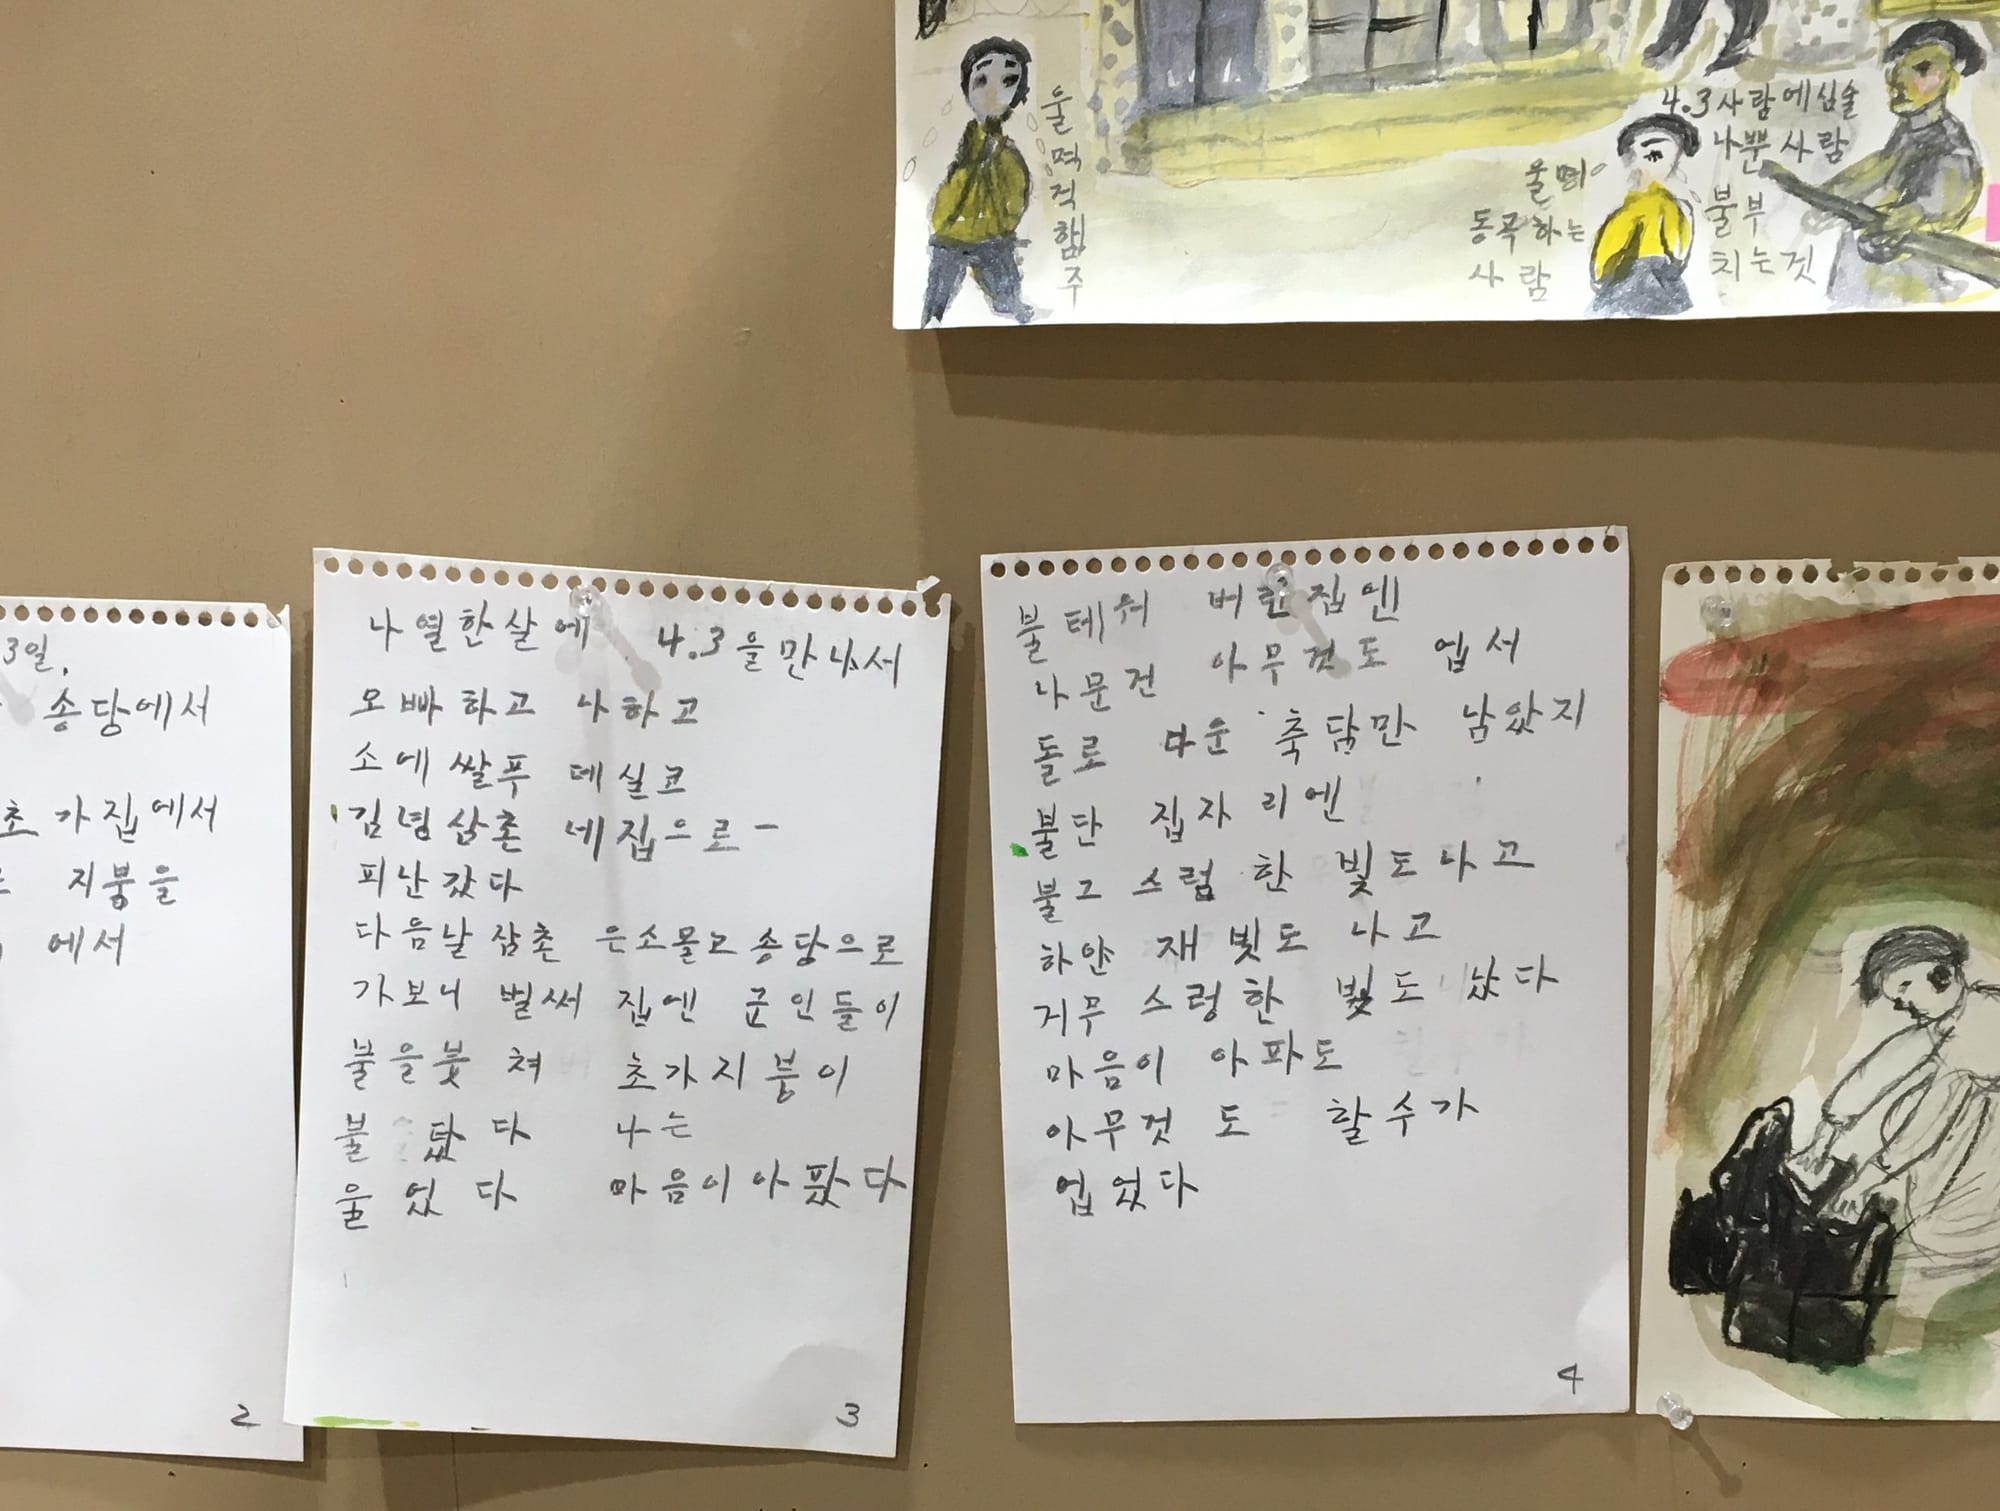 울먹
적합
주
4.3사람에심술
나뿐사람
불부
치는것
울며
동곡하는
사람
3일,
송당에서
초가집에서
지붕을
에서
2
나열한살에 4.3을만나서
오빠하고 나하고
소에쌀푸데실코
김녕삼촌네집으로-
피난갔다
다음날삼촌은소몰고송당으로
가보니 벌써 집엔 군인들이
불을붗쳐 초가지붕이
불탔다 나는
울었다 마음이아팠다
3
불테워 버린집엔
나문건 아무것도 엡서
돌로 다운 축담만 남았지
불단 집자리엔
불그스럼한 빛도나고
하얀 재빛도 나고
거무스렁한 빛도 났다
마음이 아파도
아무것도 할수가
업었다
4